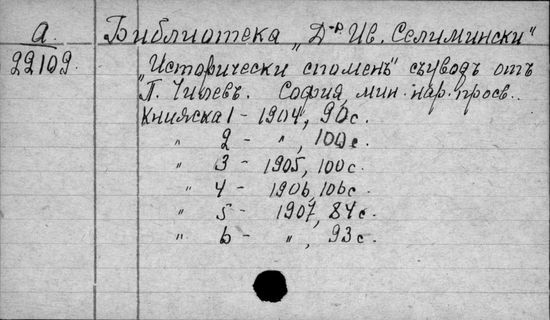 А. Библиотека „Д-р Ив. Селимински"
22109. „Исторически споменъ" съуводъ отъ
П. Чилевъ. София, мин. нар. просв..
Книжка 1 - 1904, 90с.
" 2 - ", 100с.
" 3 - 1905, 100с.
" 4 - 1906, 106с.
" 5 - 1907, 84с.
" 6 - ", 93с.